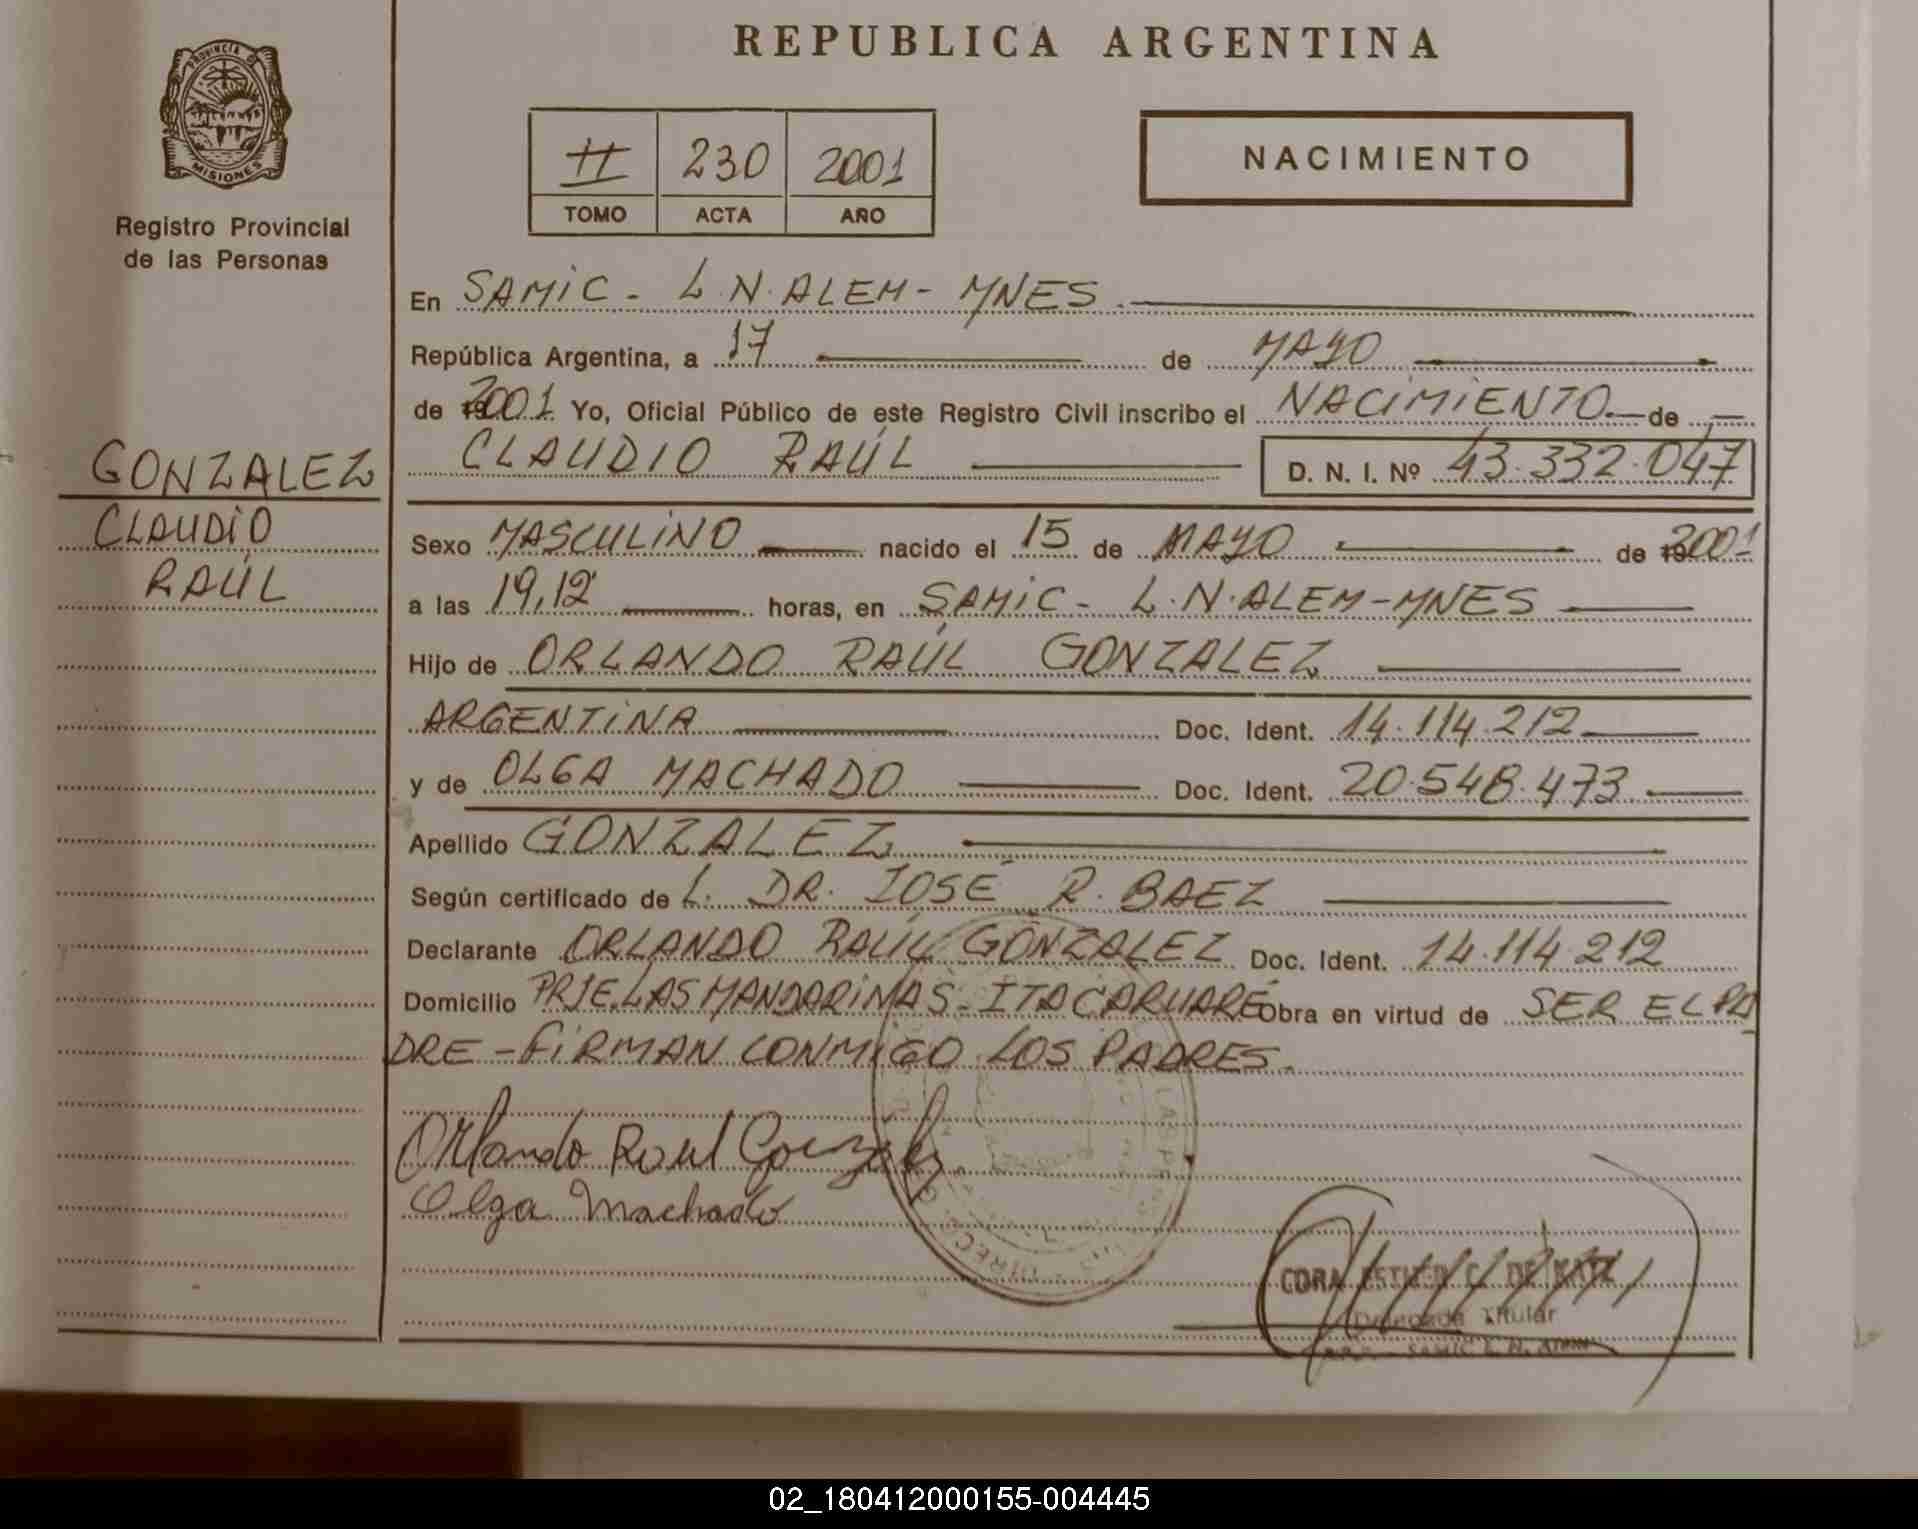 REPUBLICA ARGENTINA
PROVINCIA DE
MISIONES
Registro Provincial
de las Personas
II 230 2001
TOMO ACTA AÑO
NACIMIENTO
En SAMIC - L.N.ALEM - MNES.
República Argentina, a 17 de MAYO
de 2001 Yo, Oficial Público de este Registro Civil inscribo el NACIMIENTO de
CLAUDIO RAÚL D. N. I. Nº 43.332.047
GONZALEZ
CLAUDIO
RAÚL
Sexo MASCULINO nacido el 15 de MAYO de 2001
a las 19,12 horas, en SAMIC - L.N.ALEM - MNES
Hijo de ORLANDO RAÚL GONZALEZ
ARGENTINA Doc. Ident. 14.114.212
y de OLGA MACHADO Doc. Ident. 20.548.473
Apellido GONZALEZ
Según certificado de L. DR. JOSÉ R. BAEZ
Declarante ORLANDO RAÚL GONZALEZ Doc. Ident. 14.114.212
Domicilio PRJE.LAS MANDARINAS - ITACARUARÉ Obra en virtud de SER EL PA
DRE - FIRMAN CONMIGO LOS PADRES.
Orlando Raul Gonzalez
Olga Machado
CORA C. DE KATZ
Delegada Titular
SAMIC L. N. ALEM
02_180412000155-004445